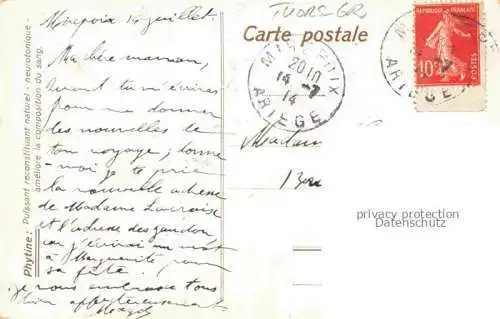 Phytine : Puissant reconstituant naturel - neurotonique
améliore la composition du sang.
Mirepoix 14 juillet
Ma chère maman,
quand tu m'écriras
pour me donner
des nouvelles de
ton voyage ; donne
-moi je te prie
la nouvelle adresse
de Madame Lacroix
et l'adresse des
car j'écrirai un mot
à Marguerite pour
sa fête.
je vous embrasse tous
bien affectueusement
Carte postale
MIREPOIX
20 10
14 -7
14
ARIEGE
RÉPUBLIQUE FRANÇAISE
10
POSTES
ARIEGE
Madame
privacy protection
Datenschutz